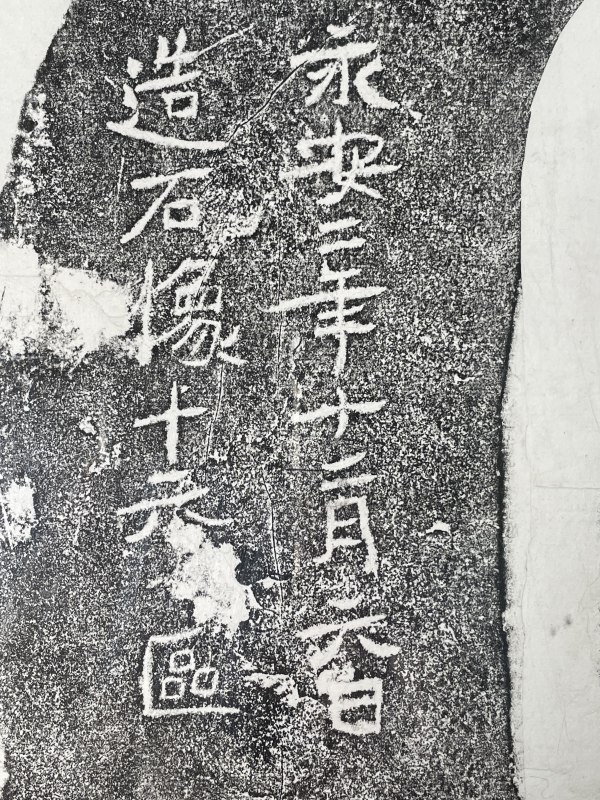 永安二年十二月六日
造石像十六區